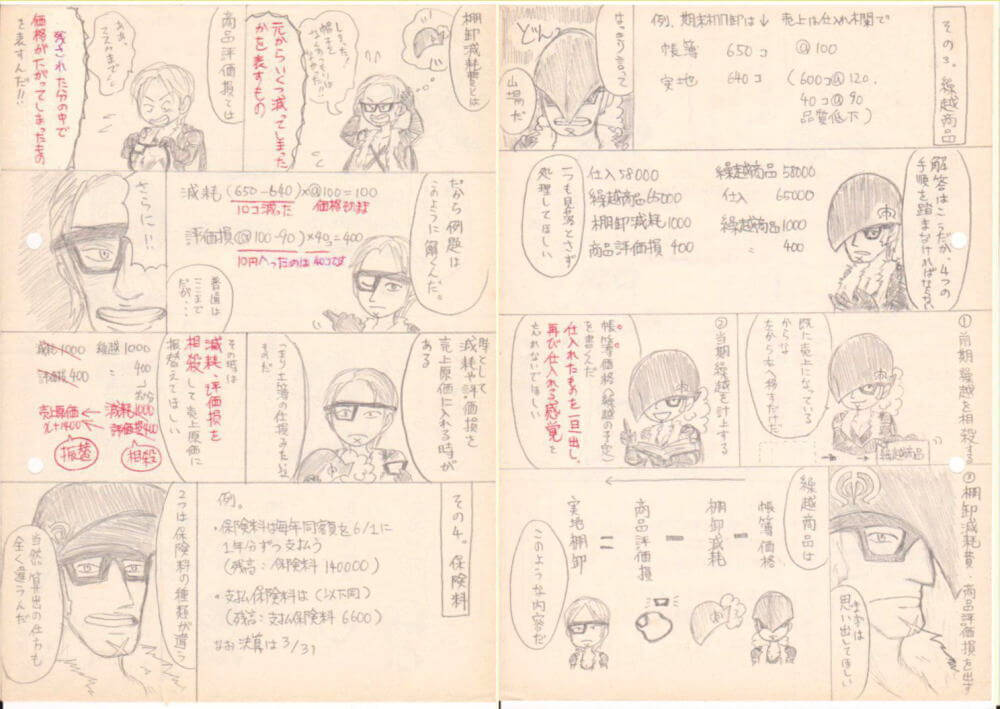 その3。繰越商品
例、期末棚卸は↓ 売上は仕入れ相関で
帳簿 650コ @100
実地 640コ (600コ@120.
40コ@90
品質低下)
はっきり言って
どんっ
山場だ
解答はこうだが、4つの
手順を踏まなければならない
仕入 58000 繰越商品 58000
繰越商品 65000 仕入 65000
棚卸減耗 1000 繰越商品 1000
商品評価損 400 〃 400
一つも見落とさず
処理してほしい
①前期繰越を相殺する
既に売上になっている
からな
左から右へ移すだけだ
繰越商品
②当期繰越を計上する
帳簿価格(繰越の予定)
を書くんだ
仕入れたものを一旦出し、
再び仕入れる感覚を
忘れないでほしい
③棚卸減耗費・商品評価損を出す
まずは
思い出してほしい
繰越商品は
帳簿価格
-
棚卸減耗
-
商品評価損
=
実地棚卸
このような内容だ
棚卸減耗費とは
しまった!
帽子を
元からいくつ減ってしまった
かを表すもの
商品評価損とは
ああ、
残された分の中で
価格が下がってしまったもの
を表すんだ!!
だから例題は
このように解くんだ。
減耗 (650-640)×@100=100
10コ減った 価格そのまま
評価損(@100-90)×40コ=400
10円へったのは40コです
普通は
ここまで
だが・・・
さらに!!
時として
減耗や評価損を
売上原価に入れる時が
ある
つまり工簿の仕損みたいな
ものだ
その時は
減耗・評価損を
相殺して売上原価に
振替えてほしい
減耗 1000 繰越 1000
評価損 400 〃 400
売上原価 ← 減耗 1000
1400 ← 評価損 400
振替
相殺
その4。保険料
例。
・保険料は毎年同額を6/1に
1年分ずつ支払う
(残高:保険料 140000)
・支払保険料は(以下同)
(残高:支払保険料 6600)
なお決算は3/31
2つは保険料の種類が違う
当然算出の仕方も
全く違うんだ